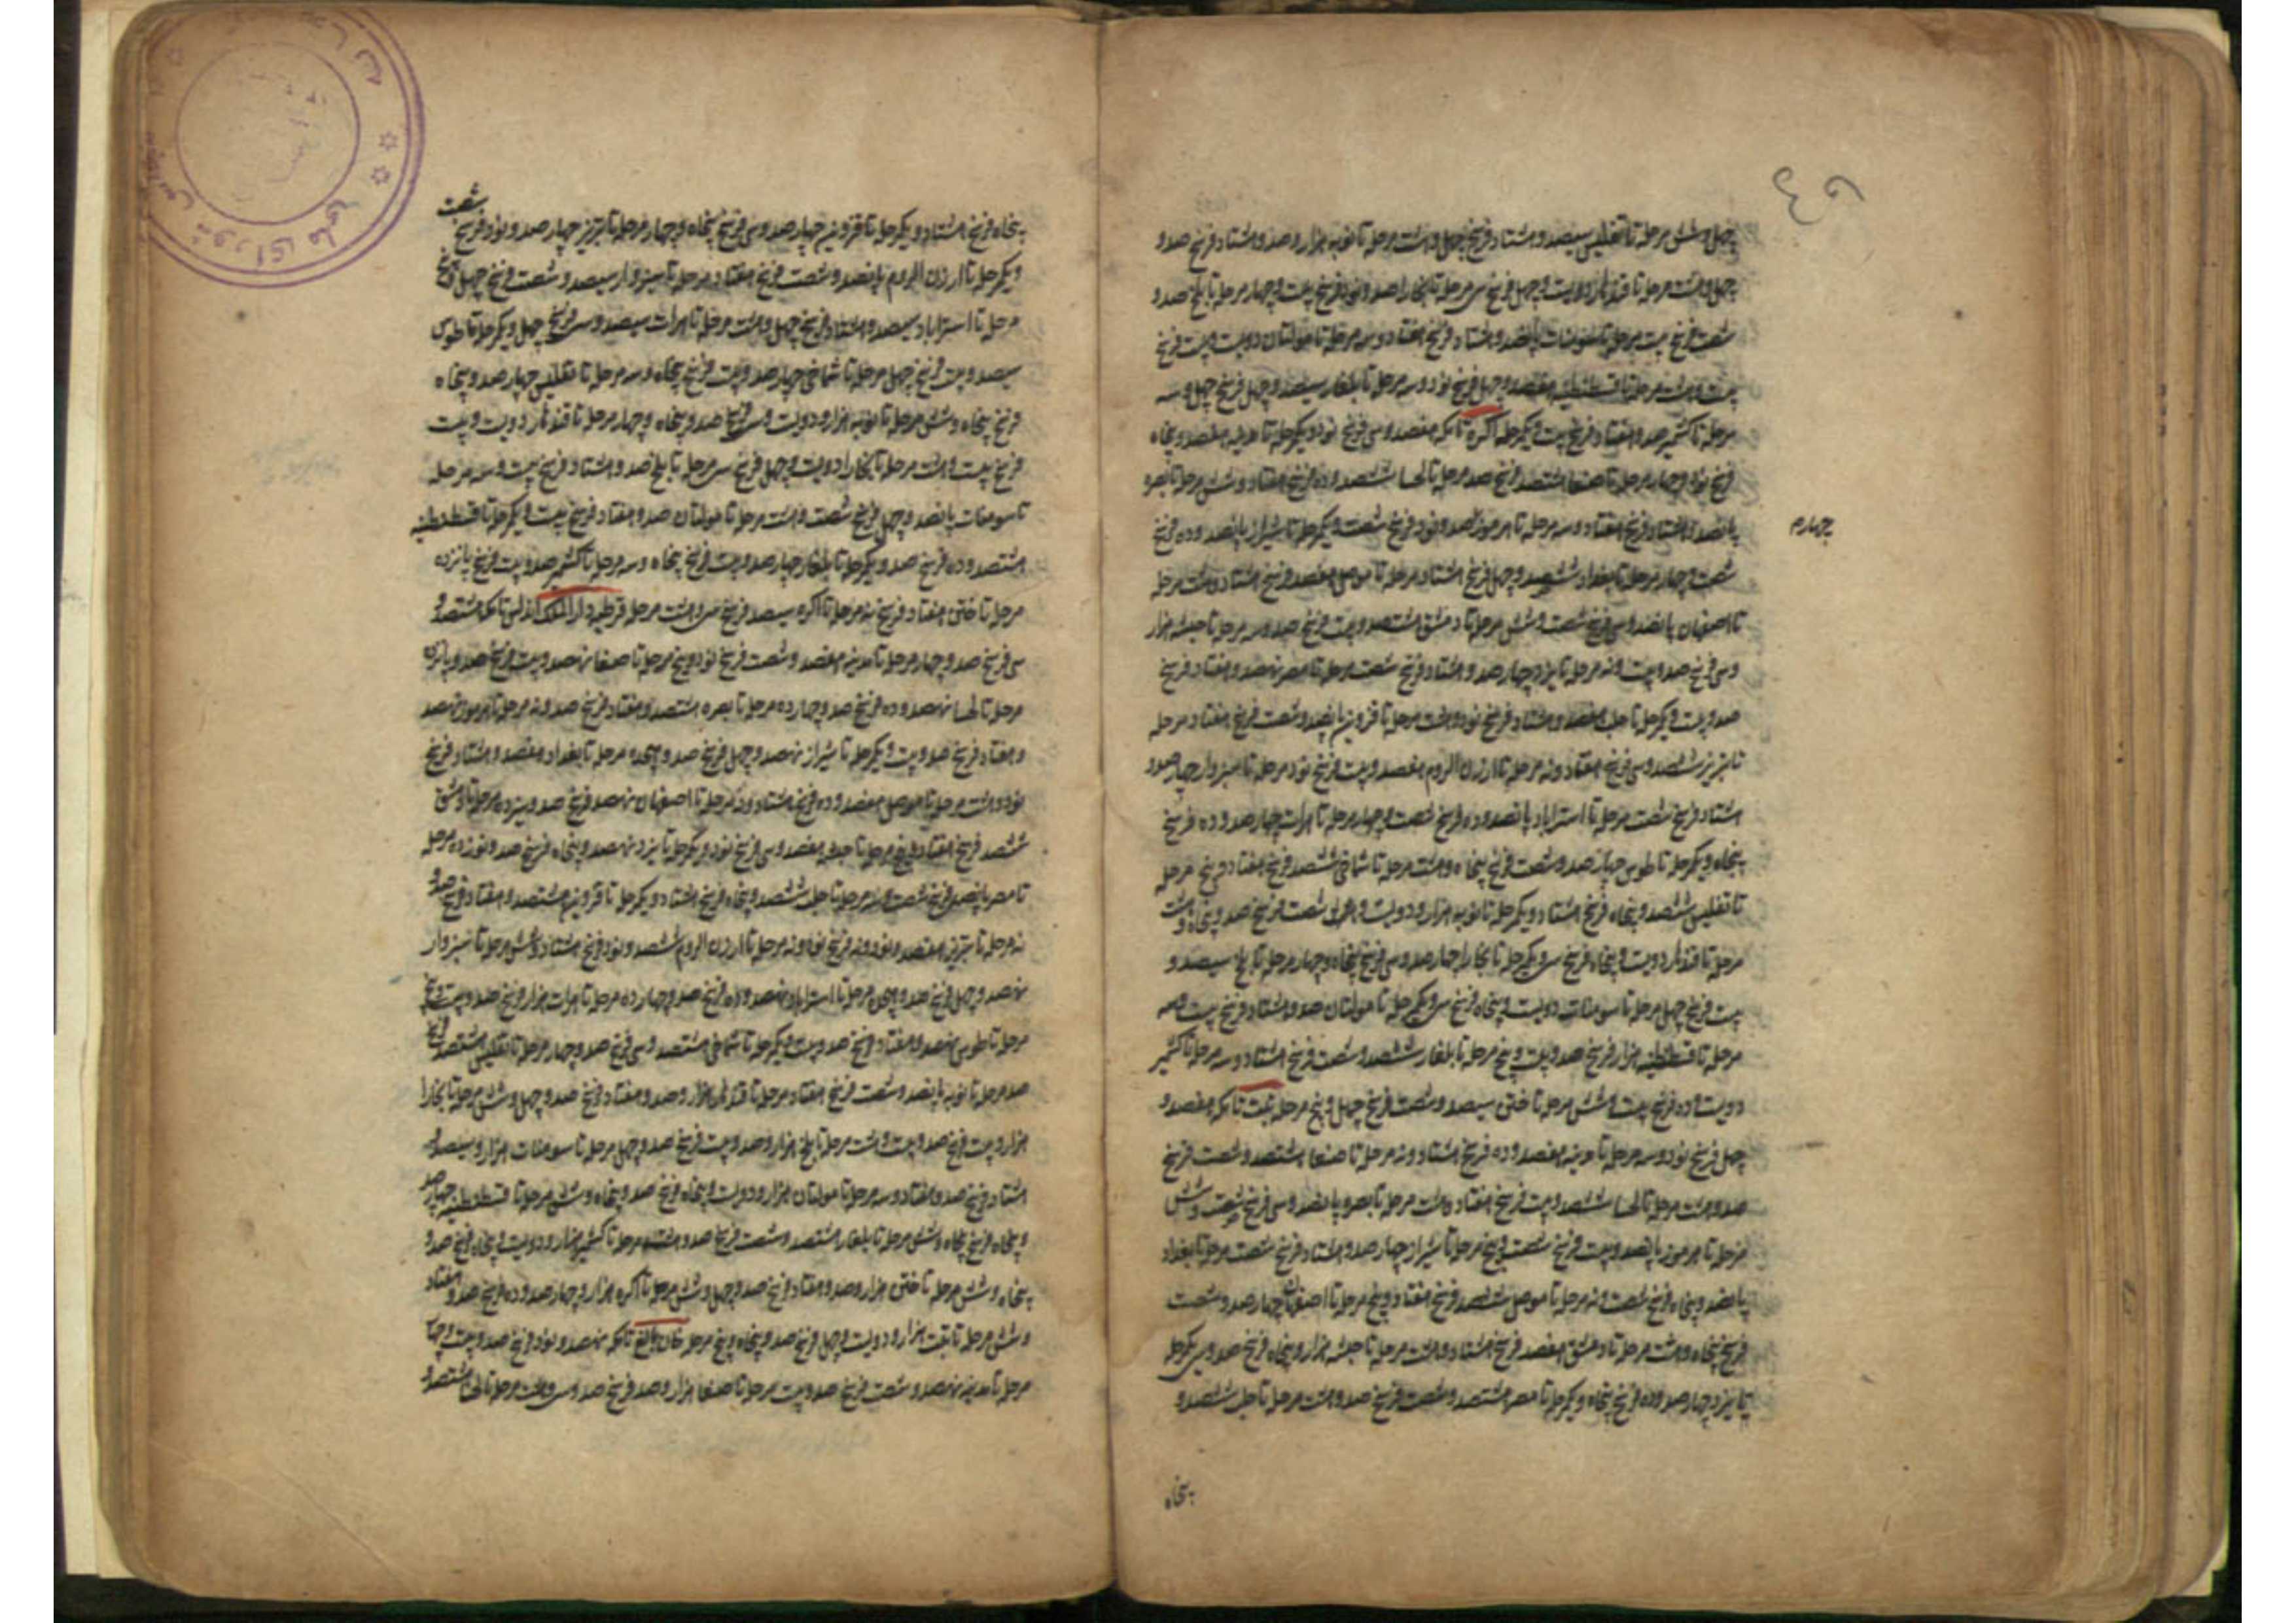 چهل و شش مرحله تا تفلیس سیصد و هشتاد فرسخ چهل و هشت مرحله تا نوبه هزار و صد و هشتاد فرسخ صد و
چهل و هشت مرحله تا قندهار دویست و چهل فرسخ سی مرحله تا بخارا صد و نود فرسخ بیست و چهار مرحله تا بلخ صد و
شصت فرسخ بیست مرحله تا سومنات پانصد و هشتاد فرسخ هفتاد و سه مرحله تا مولتان دویست و بیست فرسخ
بیست و هشت مرحله تا قسطنطنیه هفتصد و چهل فرسخ نود و سه مرحله تا بلغار سیصد و چهل فرسخ چهل و سه
مرحله تا کشمیر صد و هفتاد فرسخ بیست و یکمرحله اکره تا مکه هفتصد و سی فرسخ نود و یکمرحله تا مدینه هفتصد و پنجاه
فرسخ نود و چهار مرحله تا صنعا هشتصد فرسخ صد مرحله تا لحسا ششصد و ده فرسخ هفتاد و شش مرحله تا بصره
پانصد و هشتاد فرسخ هفتاد و سه مرحله تا هرموز صد و نود فرسخ شصت و یکمرحله تا شیراز پانصد و ده فرسخ
چهارم
شصت و چهار مرحله تا بغداد ششصد و چهل فرسخ هشتاد مرحله تا موصل هفتصد فرسخ هشتاد و هشت مرحله
تا اصفهان پانصد و سی فرسخ شصت و شش مرحله تا دمشق هشتصد و بیست فرسخ صد و سه مرحله تا حبشه هزار
و سی فرسخ صد و بیست و نه مرحله تا یزد چهار صد و هشتاد فرسخ شصت مرحله تا مصر نهصد و هفتاد فرسخ
صد و بیست و یکمرحله تا حلب هفتصد و هشتاد فرسخ نود و هشت مرحله تا قزوین پانصد و شصت فرسخ هفتاد مرحله
تا تبریز ششصد و سی فرسخ هفتاد و نه مرحله تا ارزن الروم هفتصد و بیست فرسخ نود مرحله تا سبزوار چهار صد و
هشتاد فرسخ شصت مرحله تا استراباد پانصد و ده فرسخ شصت و چهار مرحله تا هرات چهار صد و ده فرسخ
پنجاه و یکمرحله تا طوس چهار صد و شصت فرسخ پنجاه و هشت مرحله تا شماخی ششصد فرسخ هفتاد و پنج مرحله
تا تفلیس ششصد و پنجاه فرسخ هشتاد و یکمرحله تا نوبه هزار و دویست و شصت فرسخ صد و پنجاه و هشت
مرحله تا قندهار دویست و پنجاه فرسخ سی و یکمرحله تا بخارا چهار صد و سی فرسخ پنجاه و چهار مرحله تا بلخ سیصد و
بیست فرسخ چهل مرحله تا سومنات دویست و پنجاه فرسخ سی و یکمرحله تا مولتان صد و هشتاد فرسخ بیست و سه
مرحله تا قسطنطنیه هزار فرسخ صد و بیست و پنج مرحله تا بلغار ششصد و شصت فرسخ هشتاد و سه مرحله تا کشمیر
دویست و ده فرسخ بیست و شش مرحله تا ختن سیصد و شصت فرسخ چهل و پنج مرحله تبت تا مکه هفتصد و
چهل فرسخ نود و سه مرحله تا مدینه هفتصد و ده فرسخ هشتاد و نه مرحله تا صنعا هشتصد و شصت فرسخ
صد و هشت مرحله تا لحسا ششصد و بیست فرسخ هفتاد و هشت مرحله تا بصره پانصد و سی فرسخ شصت و شش
مرحله تا هرموز پانصد و بیست فرسخ شصت و پنج مرحله تا شیراز چهار صد و هشتاد فرسخ شصت مرحله تا بغداد
پانصد و پنجاه فرسخ شصت و نه مرحله تا موصل ششصد فرسخ هفتاد و پنج مرحله تا اصفهان چهار صد و شصت
فرسخ پنجاه و هشت مرحله تا دمشق هفتصد فرسخ هشتاد و هشت مرحله تا حبشه هزار و پنجاه فرسخ صد و سی یکمرحله
تا یزد چهار صد و ده فرسخ پنجاه و یکمرحله تا مصر هشتصد و شصت فرسخ صد و هشت مرحله تا حلب ششصد و
پنجاه
پنجاه فرسخ هشتاد و یکمرحله تا قزوین چهار صد و سی فرسخ پنجاه و چهار مرحله تا تبریز چهار صد و نود فرسخ شصت
و یکمرحله تا ارزن الروم پانصد و شصت فرسخ هفتاد مرحله تا سبزوار سیصد و شصت فرسخ چهل و پنج
مرحله تا استراباد سیصد و هشتاد فرسخ چهل و هشت مرحله تا هرات سیصد و سی فرسخ چهل و یکمرحله تا طوس
سیصد و بیست فرسخ چهل مرحله تا شماخی چهار صد و بیست فرسخ پنجاه و سه مرحله تا تفلیس چهار صد و پنجاه
فرسخ پنجاه و شش مرحله تا نوبه هزار و دویست و سی فرسخ صد و پنجاه و چهار مرحله تا قندهار دویست و بیست
فرسخ بیست و هشت مرحله تا بخارا دویست و چهل فرسخ سی مرحله تا بلخ صد و هشتاد فرسخ بیست و سه مرحله
تا سومنات پانصد و چهل فرسخ شصت و هشت مرحله تا مولتان صد و هفتاد فرسخ بیست و یکمرحله تا قسطنطنیه
هشتصد و ده فرسخ صد و یکمرحله تا بلغار چهار صد و بیست فرسخ پنجاه و سه مرحله تا کشمیر صد و بیست فرسخ پانزده
مرحله تا ختن هفتاد فرسخ نه مرحله تا اکره سیصد فرسخ سی و هشت مرحله قرطبه دار الملک اندلس تا مکه هشتصد و
سی فرسخ صد و چهار مرحله تا مدینه هفتصد و شصت فرسخ نود و پنج مرحله تا صنعا نهصد و بیست فرسخ صد و پانزده
مرحله تا لحسا نهصد و ده فرسخ صد و چهارده مرحله تا بصره هشتصد و هفتاد فرسخ صد و نه مرحله تا هرموز نهصد
و هفتاد فرسخ صد و بیست و یکمرحله تا شیراز نهصد و چهل فرسخ صد و هجده مرحله تا بغداد هفتصد و هشتاد فرسخ
نود و هشت مرحله تا موصل هفتصد و ده فرسخ هشتاد و نه مرحله تا اصفهان نهصد فرسخ صد و سیزده مرحله تا دمشق
ششصد فرسخ هفتاد و پنج مرحله تا حبشه هفتصد و سی فرسخ نود و یکمرحله تا یزد نهصد و پنجاه فرسخ صد و نوزده مرحله
تا مصر پانصد فرسخ شصت و سه مرحله تا حلب ششصد و پنجاه فرسخ هشتاد و یکمرحله تا قزوین هشتصد و هفتاد فرسخ صد و
نه مرحله تا تبریز هفتصد و نود و نه فرسخ نود و نه مرحله تا ارزن الروم ششصد و نود فرسخ هشتاد و شش مرحله تا سبزوار
نهصد و چهل فرسخ صد و هجده مرحله تا استراباد نهصد و ده فرسخ صد و چهارده مرحله تا هرات هزار فرسخ صد و بیست و پنج
مرحله تا طوس نهصد و هفتاد فرسخ صد و بیست و یکمرحله تا شماخی هشتصد و سی فرسخ صد و چهار مرحله تا تفلیس هشتصد فرسخ
صد مرحله تا نوبه پانصد و شصت فرسخ هفتاد مرحله تا قندهار هزار و صد و هفتاد فرسخ صد و چهل و شش مرحله تا بخارا
هزار و بیست فرسخ صد و بیست و هشت مرحله تا بلخ هزار و صد و بیست فرسخ صد و چهل مرحله تا سومنات هزار و سیصد و
هشتاد فرسخ صد و هفتاد و سه مرحله تا مولتان هزار و دویست و پنجاه فرسخ صد و پنجاه و شش مرحله تا قسطنطنیه چهار صد
و پنجاه فرسخ پنجاه و شش مرحله تا بلغار هشتصد و شصت فرسخ صد و هشت مرحله تا کشمیر هزار و دویست و پنجاه فرسخ صد و
پنجاه و شش مرحله تا ختن هزار و صد و هفتاد فرسخ صد و چهل و شش مرحله تا اکره هزار و چهار صد و ده فرسخ صد و هفتاد
و شش مرحله تا تبت هزار و دویست و چهل فرسخ صد و پنجاه و پنج مرحله خان بالغ تا مکه نهصد و نود فرسخ صد و بیست و چهار
مرحله تا مدینه نهصد و شصت فرسخ صد و بیست مرحله تا صنعا هزار و صد فرسخ صد و سی و هشت مرحله تا لحسا هشتصد و